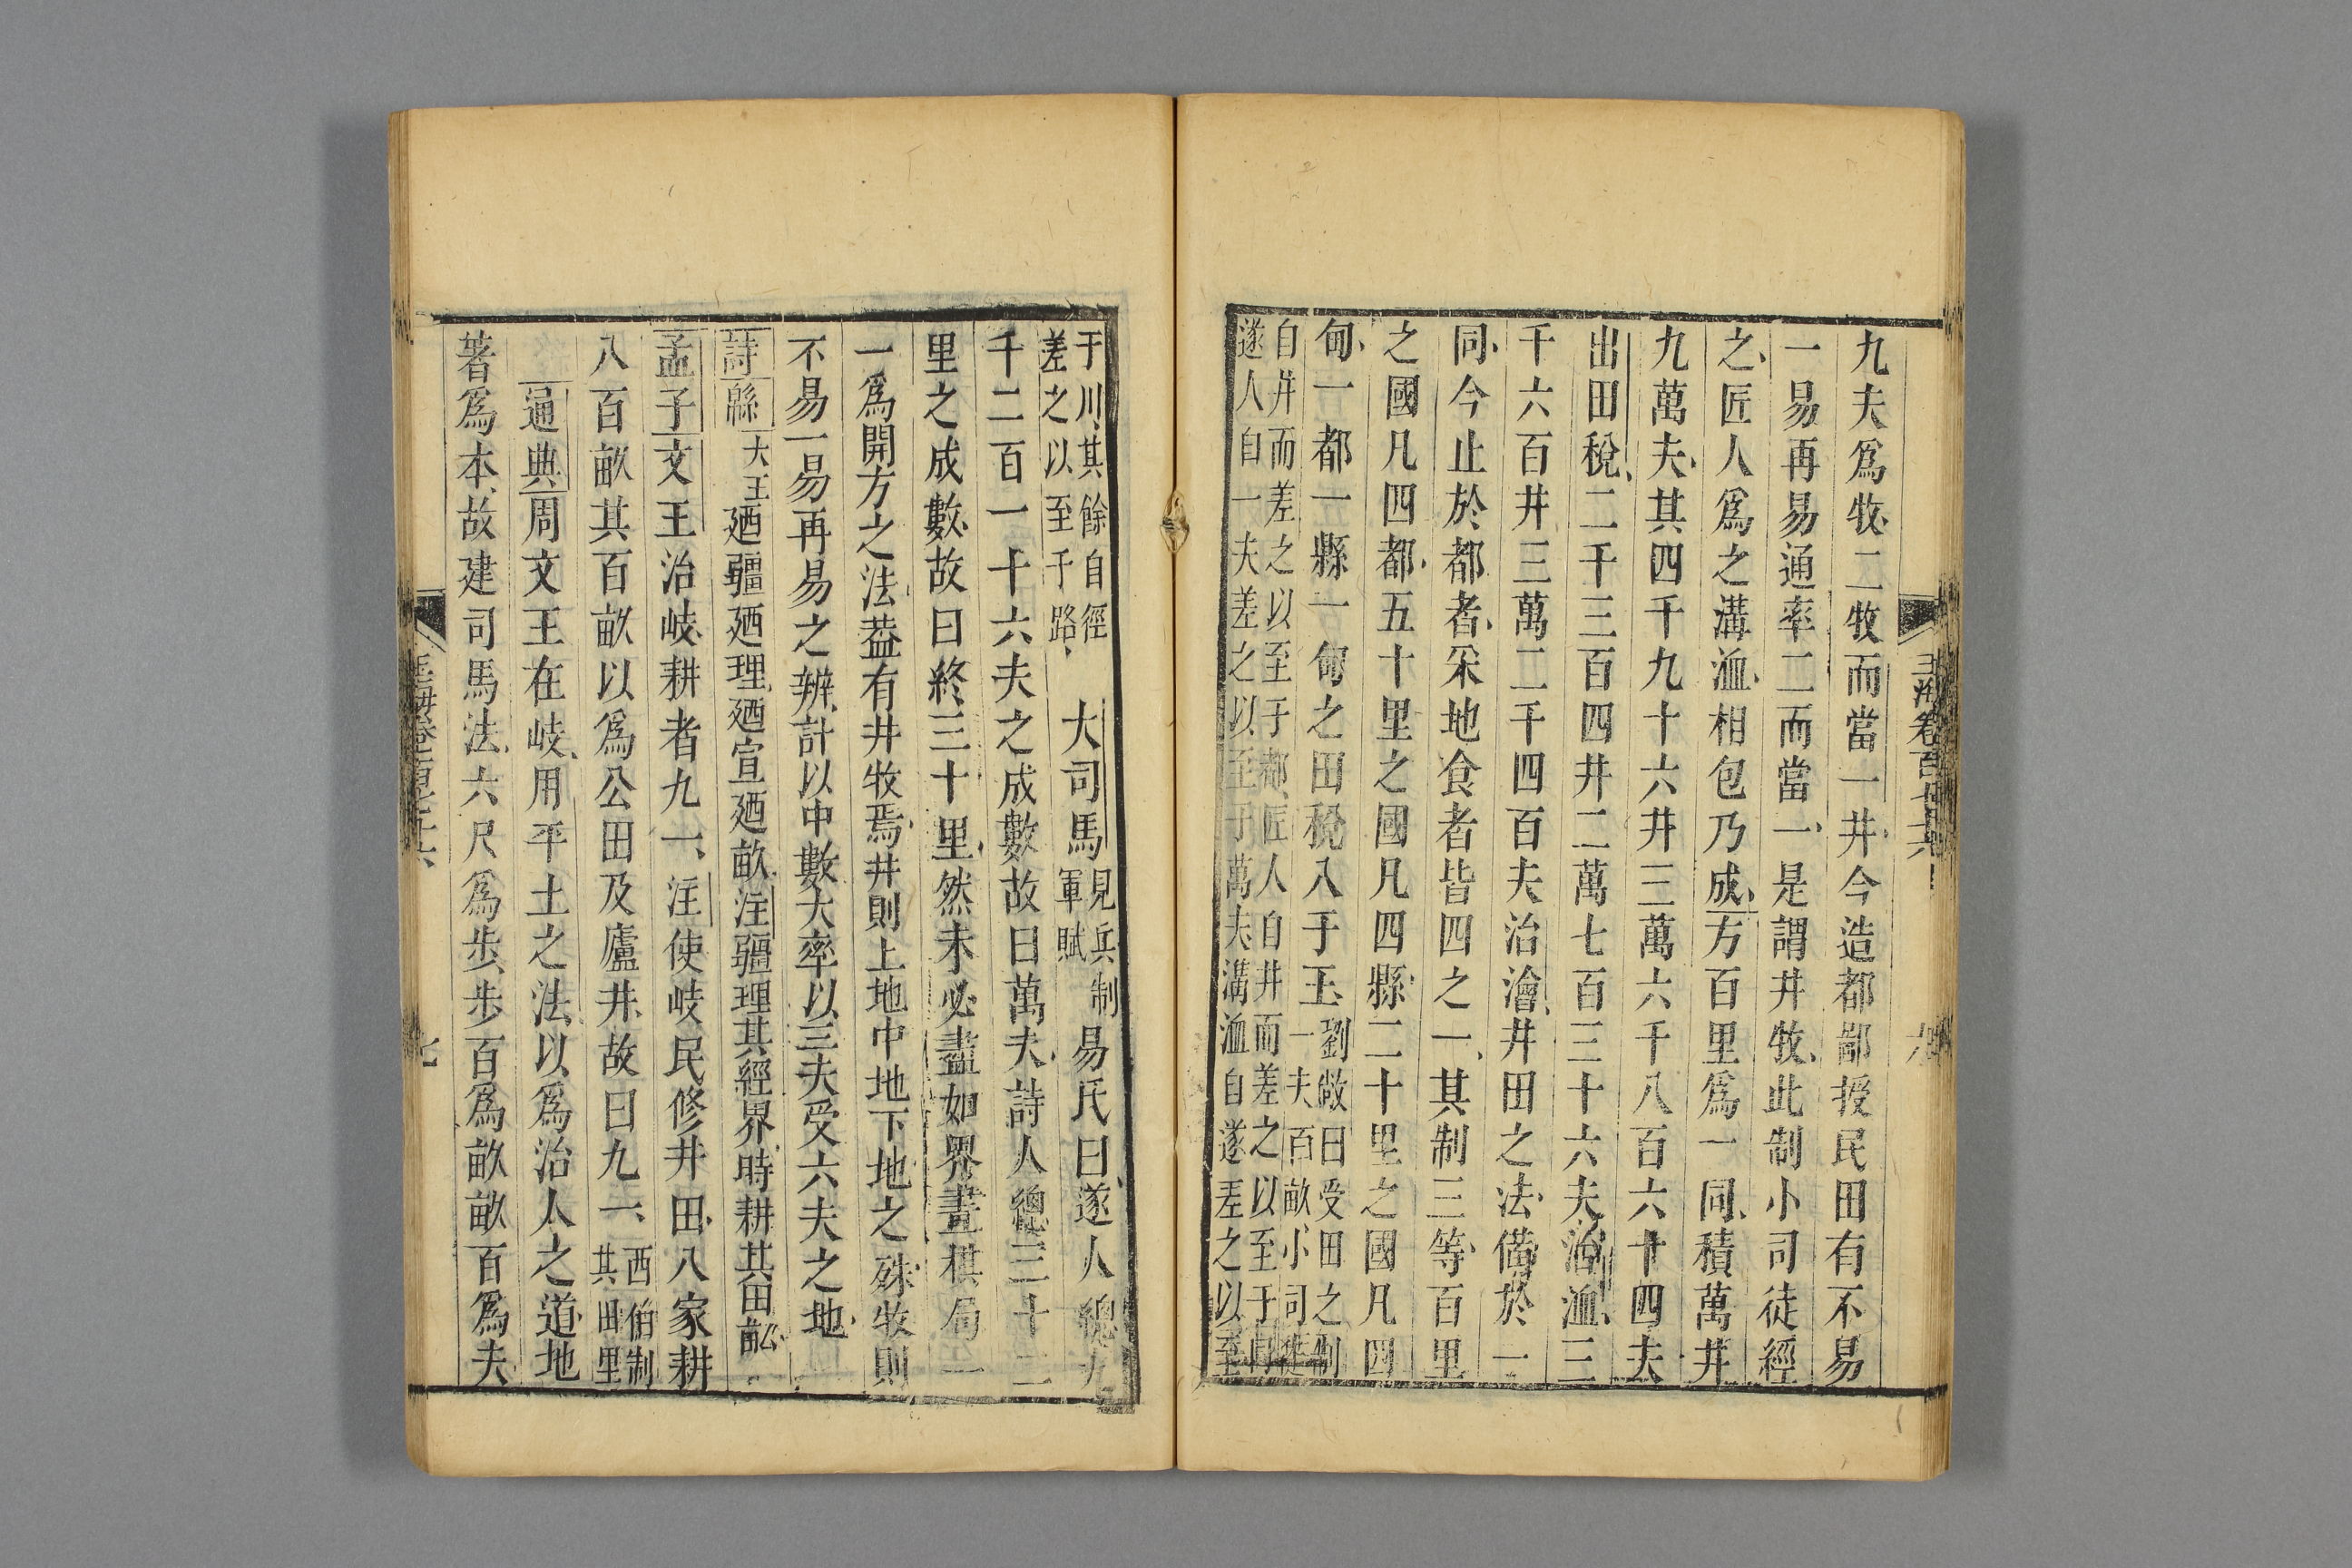 九夫爲牧二牧而當一井今造都鄙授民田有不易
一易再易通率二而當一是謂井牧此制小司徒經
之匠人爲之溝洫相包乃成方百里爲一同積萬井
九萬夫其四千九十六井三萬六千八百六十四夫
出田稅二千三百四井二萬七百三十六夫治洫三
千六百井三萬二千四百夫治澮井田之法備於一
同今止於都者采地食者皆四之一其制三等百里
之國凡四都五十里之國凡四縣二十里之國凡四
甸一都一縣一甸之田稅入于王劉敞曰受田之制
一夫百畝小司徒
自井而差之以至于都匠人自井而差之以至于
遂人自一夫差之以至于萬夫溝洫自遂差之以至
玉海卷百七十六
于川其餘自徑
差之以至千路
大司馬見兵制
軍賦
易氏曰遂人總九
千二百一十六夫之成數故曰萬夫詩人總三十二
里之成數故曰終三十里然未必盡如界畫棋局一
一爲開方之法葢有井牧焉井則上地中地下地之殊牧則
不易一易再易之辨計以中數大率以三夫受六夫之地
詩緜大王廼疆廼理廼宣廼畝注疆理其經界時耕其田畝
孟子文王治岐耕者九一注使岐民修井田八家耕
八百畝其百畝以爲公田及廬井故曰九一西伯制
其田里
通典周文王在岐用平土之法以爲治人之道地
著爲本故建司馬法六尺爲步步百爲畝畝百爲夫
七